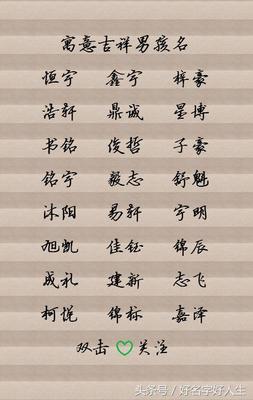 寓意吉祥男孩名
恒宇 鑫宇 梓豪
浩轩 鼎诚 星博
书铭 俊哲 子豪
铭宇 毅志 舒魁
沐阳 易轩 宇明
旭凯 佳钰 锦辰
成礼 建新 志飞
柯悦 锦标 嘉泽
双击 关注
头条号 / 好名字好人生